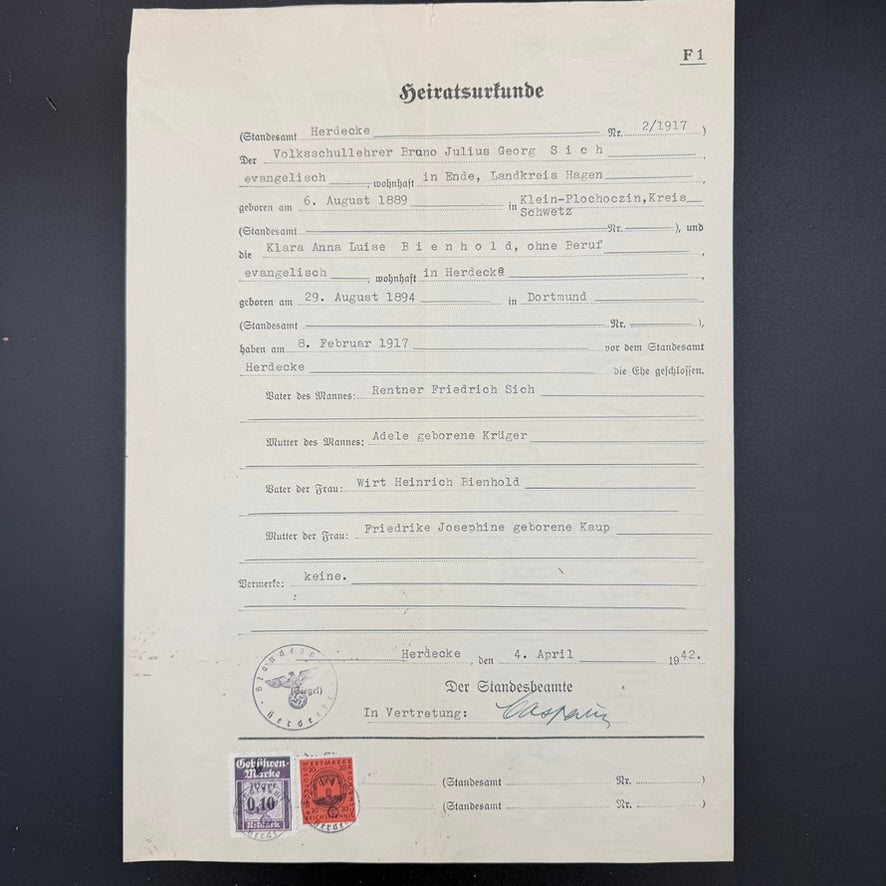 F 1
Heiratsurkunde
(Standesamt Herdecke Nr. 2/1917 )
Der Volksschullehrer Bruno Julius Georg S i c h
evangelisch , wohnhaft in Ende, Landkreis Hagen ,
geboren am 6. August 1889 in Klein-Plochoczin, Kreis
Schwetz
(Standesamt Nr. ), und
die Klara Anna Luise B i e n h o l d, ohne Beruf ,
evangelisch , wohnhaft in Herdecke ,
geboren am 29. August 1894 in Dortmund
(Standesamt Nr. ),
haben am 8. Februar 1917 vor dem Standesamt
Herdecke die Ehe geschlossen.
Vater des Mannes: Rentner Friedrich Sich
Mutter des Mannes: Adele geborene Krüger
Vater der Frau: Wirt Heinrich Bienhold
Mutter der Frau: Friedrike Josephine geborene Kaup
Vermerke: keine.
Herdecke , den 4. April 1942.
(Siegel)
Der Standesbeamte
In Vertretung:
Gebühren-
Marke
0,10
(Standesamt Nr. )
(Standesamt Nr. )